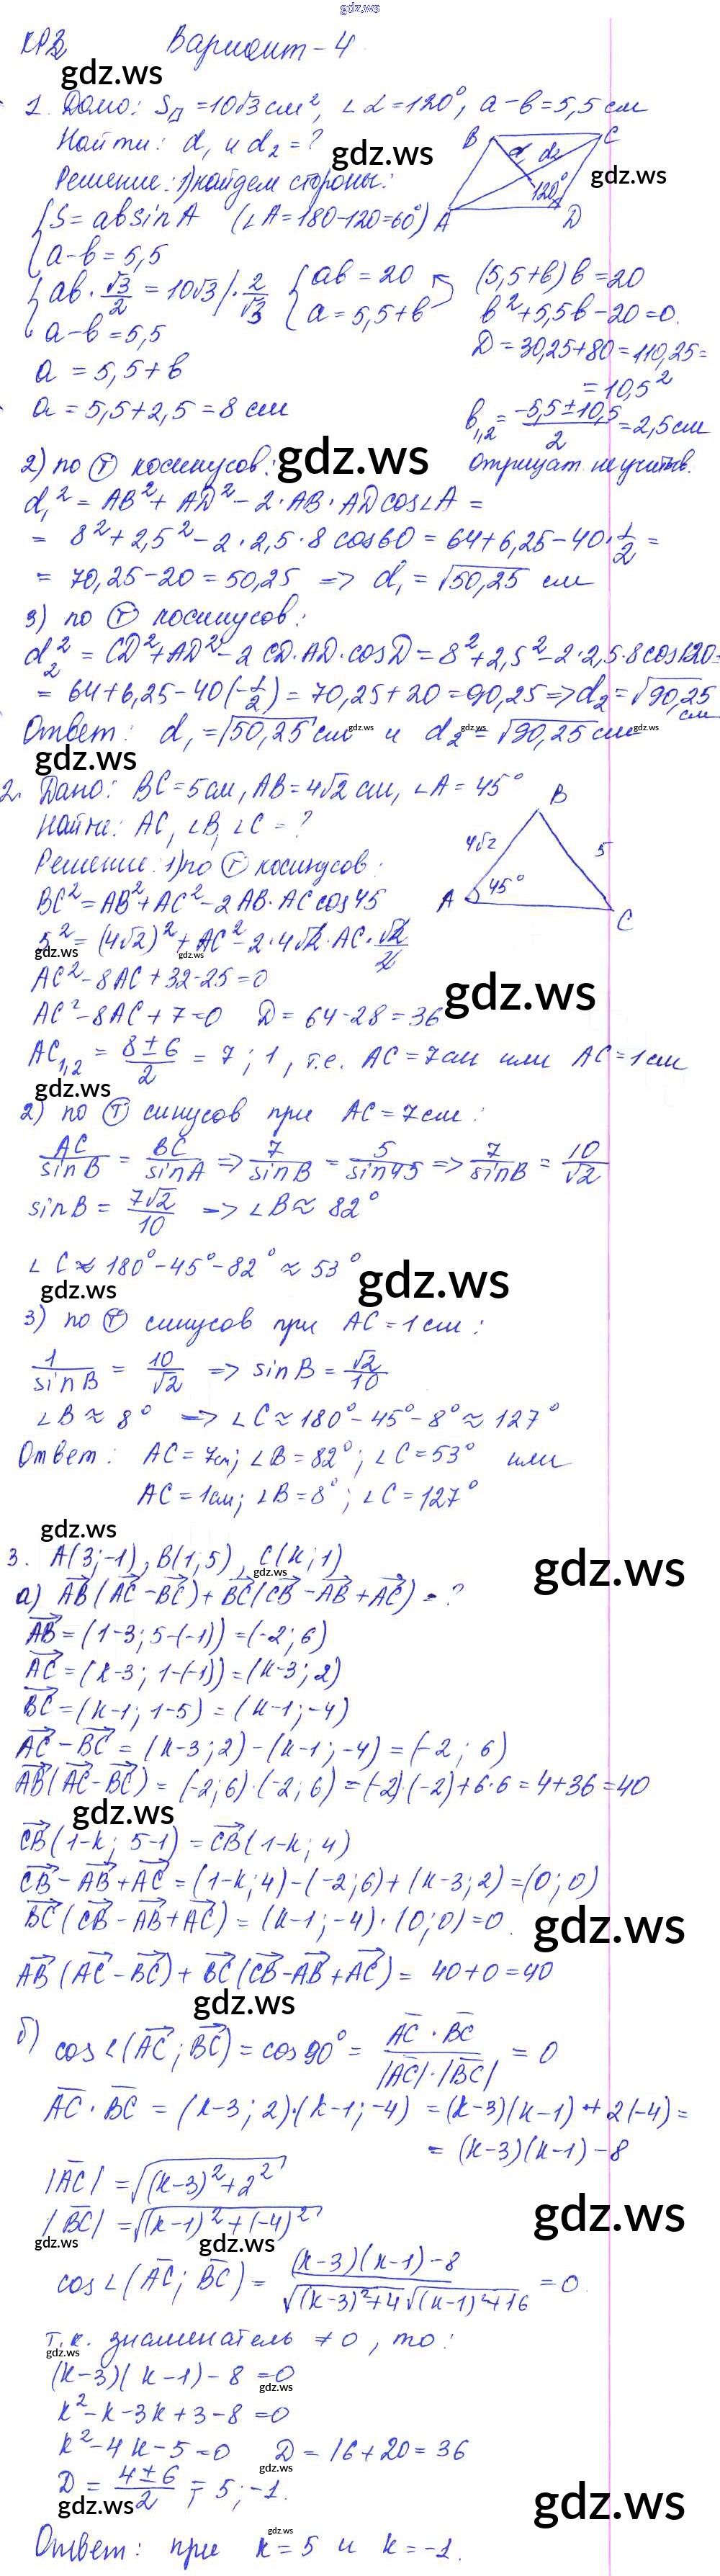 gdz.ws
КР2 Вариант-4
gdz.ws
1. Дано: Sд =10√3 см², ∠L=120°, a-b=5,5 см
Найти: d₁ и d₂ = ?
gdz.ws
B C d₁ d₂ 120° A D
gdz.ws
Решение: 1) найдем стороны:
{S = absinA (∠A=180-120=60°)
a-b = 5,5
{ab · √3/2 = 10√3 | · 2/√3 {ab = 20 (5,5+b) b = 20
a-b = 5,5 a = 5,5+b b²+5,5b-20=0.
a = 5,5+b D = 30,25+80=110,25=
= 10,5²
a = 5,5+2,5 = 8 см b₁,₂ = (-5,5±10,5)/2 = 2,5 см
2) по Т косинусов: gdz.ws отрицат. не учитыв.
d₁² = AB² + AD² - 2·AB·ADcos∠A =
= 8²+2,5²-2·2,5·8 cos60 = 64+6,25-40·1/2 =
= 70,25-20 = 50,25 => d₁ = √50,25 см
3) по Т косинусов:
d₂² = CD²+AD²-2CD·AD·cosD = 8²+2,5²-2·2,5·8cos120=
= 64+6,25-40(-1/2) = 70,25+20=90,25=>d₂=√90,25 см
Ответ: d₁=√50,25 см и d₂=√90,25 см
gdz.ws gdz.ws gdz.ws
gdz.ws
2. Дано: BC=5см, AB=4√2 см, ∠A=45°
Найти: AC, ∠B, ∠C = ?
B 4√2 5 A 45° C
Решение: 1) по Т косинусов:
BC²=AB²+AC²-2AB·AC cos45
5²=(4√2)²+AC²-2·4√2·AC·√2/2
gdz.ws gdz.ws
AC²-8AC+32-25=0
AC²-8AC+7=0 D=64-28=36
gdz.ws
AC₁,₂ = (8±6)/2 = 7; 1, т.е. AC=7см или AC=1см
gdz.ws
2) по Т синусов при AC=7см:
AC/sinB = BC/sinA => 7/sinB = 5/sin45 => 7/sinB = 10/√2
sinB = 7√2/10 => ∠B ≈ 82°
∠C ≈ 180°-45°-82° ≈ 53°
gdz.ws gdz.ws
3) по Т синусов при AC=1см:
1/sinB = 10/√2 => sinB = √2/10
∠B ≈ 8° => ∠C ≈ 180°-45°-8° ≈ 127°
Ответ: AC=7см; ∠B=82°; ∠C=53° или
AC=1см; ∠B=8°; ∠C=127°
gdz.ws
3. A(3;-1), B(1;5), C(k;1)
gdz.ws gdz.ws
а) AB(AC-BC)+BC(CB-AB+AC)-?
AB=(1-3; 5-(-1))=(-2;6)
AC=(k-3; 1-(-1))=(k-3;2)
BC=(k-1; 1-5)=(k-1;-4)
AC-BC=(k-3;2)-(k-1;-4)=(-2;6)
AB(AC-BC)=(-2;6)·(-2;6)=(-2)·(-2)+6·6=4+36=40
gdz.ws
CB(1-k; 5-1)=CB(1-k;4)
CB-AB+AC=(1-k;4)-(-2;6)+(k-3;2)=(0;0)
BC(CB-AB+AC)=(k-1;-4)·(0;0)=0.
gdz.ws
AB(AC-BC)+BC(CB-AB+AC)= 40+0=40
gdz.ws
б) cos∠(AC;BC)=cos90°= AC·BC/|AC|·|BC| = 0
AC·BC = (k-3;2)·(k-1;-4) = (k-3)(k-1)+2(-4)=
= (k-3)(k-1)-8
|AC|=√(k-3)²+2²
gdz.ws
|BC|=√(k-1)²+(-4)²
gdz.ws gdz.ws
cos∠(AC;BC)= (k-3)(k-1)-8/√(k-3)²+4√(k-1)²+16 =0.
т.к. знаменатель ≠0, то:
gdz.ws
(k-3)(k-1)-8=0
gdz.ws
k²-k-3k+3-8=0
k²-4k-5=0 D=16+20=36
gdz.ws
D = (4±6)/2 = 5; -1.
gdz.ws gdz.ws
gdz.ws
Ответ: при k=5 и k=-1.